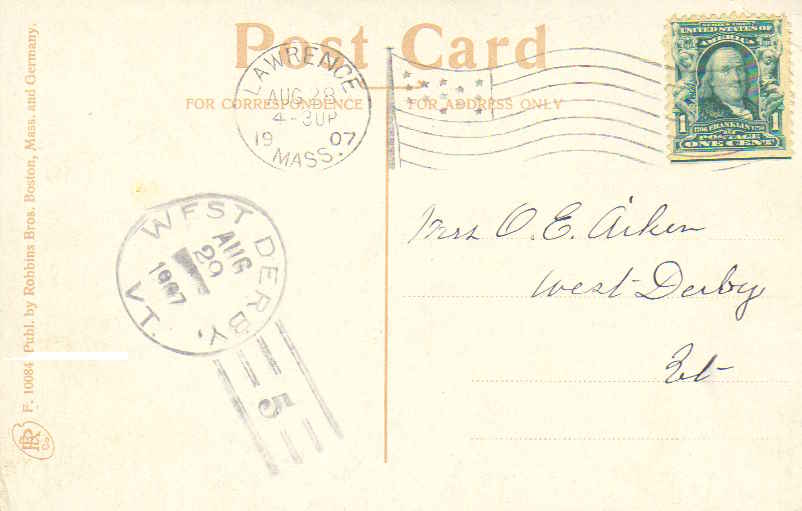 Post Card
FOR CORRESPONDENCE
FOR ADDRESS ONLY
LAWRENCE
AUG 28
4-30P
19 07
MASS.
SERIES 1902
UNITED STATES OF
AMERICA
1 1
1706 FRANKLIN 1790
POSTAGE
ONE CENT
WEST DERBY, VT.
AUG
29
1907
5
Mrs O. E. Aiken
West Derby
Vt
F. 10084 Publ. by Robbins Bros. Boston, Mass. and Germany.